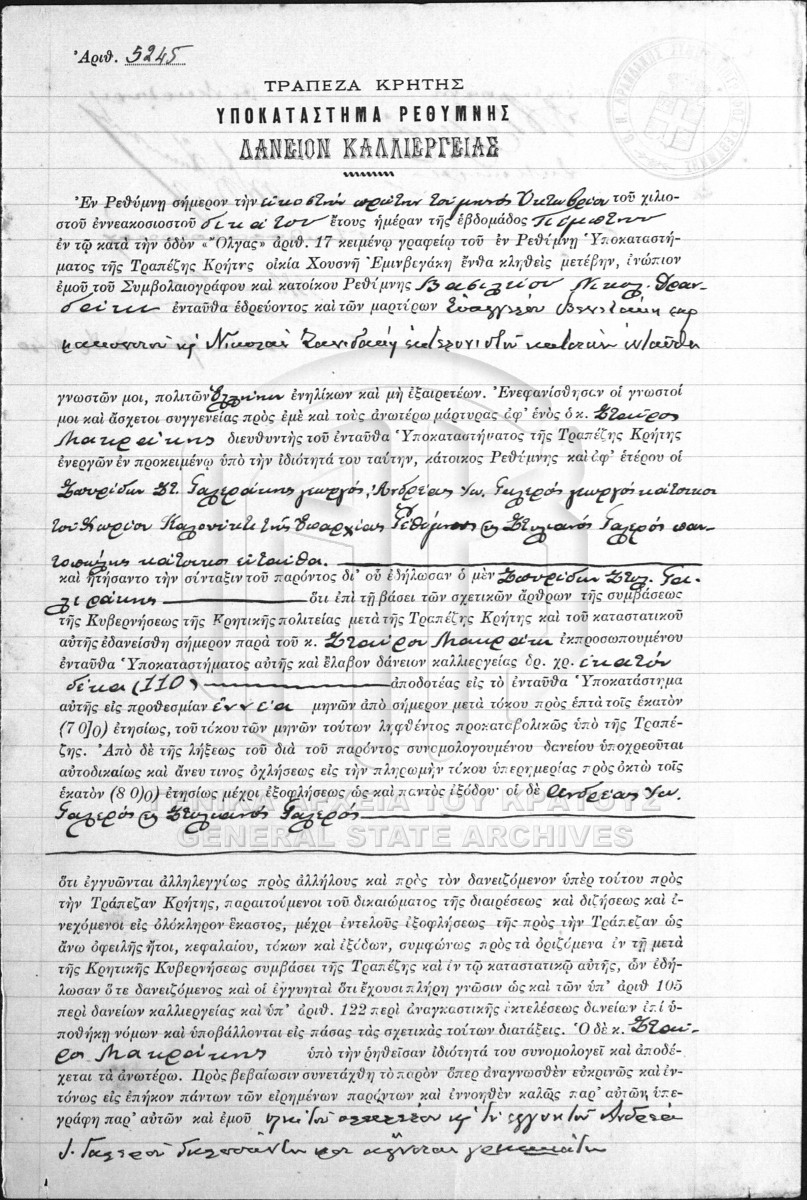 Ἀριθ. 5245
ΤΡΑΠΕΖΑ ΚΡΗΤΗΣ
ΥΠΟΚΑΤΑΣΤΗΜΑ ΡΕΘΥΜΝΗΣ
ΔΑΝΕΙΟΝ ΚΑΛΛΙΕΡΓΕΙΑΣ
Ἐν Ρεθύμνῃ σήμερον τὴν εἰκοστὴν πρώτην τοῦ μηνὸς Ὀκτωβρίου τοῦ χιλιο-
στοῦ ἐννεακοσιοστοῦ δεκάτου ἔτους ἡμέραν τῆς ἑβδομάδος Πέμπτην
ἐν τῷ κατὰ τὴν ὁδὸν «Ὄλγας» ἀριθ. 17 κειμένῳ γραφείῳ τοῦ ἐν Ρεθύμνῃ Ὑποκαταστή-
ματος τῆς Τραπέζης Κρήτης οἰκία Χουσνῆ Ἐμινβεγάκη ἔνθα κληθεὶς μετέβην, ἐνώπιον
ἐμοῦ τοῦ Συμβολαιογράφου καὶ κατοίκου Ρεθύμνης Βασιλείου Νικολ.
ἐνταῦθα ἑδρεύοντος καὶ τῶν μαρτύρων Εὐαγγέλου
καὶ Νικολάου κατοίκων ἐνταῦθα
γνωστῶν μοι, πολιτῶν Ἑλλήνων ἐνηλίκων καὶ μὴ ἐξαιρετέων. Ἐνεφανίσθησαν οἱ γνωστοί
μοι καὶ ἄσχετοι συγγενείας πρὸς ἐμὲ καὶ τοὺς ἀνωτέρω μάρτυρας ἀφ' ἑνὸς ὁ κ. Σταῦρος
Μακράκης διευθυντὴς τοῦ ἐνταῦθα Ὑποκαταστήματος τῆς Τραπέζης Κρήτης
ἐνεργῶν ἐν προκειμένῳ ὑπὸ τὴν ἰδιότητά του ταύτην, κάτοικος Ρεθύμνης καὶ ἀφ' ἑτέρου οἱ
Σπυρίδων Στ. Γαλεράκης γεωργός, Ἀνδρέας Ἰω. Γαλερός γεωργός κάτοικοι
τοῦ χωρίου Καλονύκτι τῆς Ἐπαρχίας Ρεθύμνης καὶ Στυλιανός Γαλερός παν-
τοπώλης κάτοικος ἐνταῦθα.
καὶ ᾐτήσαντο τὴν σύνταξιν τοῦ παρόντος δι' οὗ ἐδήλωσαν ὁ μὲν Σπυρίδων Στυλ. Γα-
λεράκης ὅτι ἐπὶ τῇ βάσει τῶν σχετικῶν ἄρθρων τῆς συμβάσεως
τῆς Κυβερνήσεως τῆς Κρητικῆς πολιτείας μετὰ τῆς Τραπέζης Κρήτης καὶ τοῦ καταστατικοῦ
αὐτῆς ἐδανείσθη σήμερον παρὰ τοῦ κ. Σταύρου Μακράκη ἐκπροσωπουμένου
ἐνταῦθα Ὑποκαταστήματος αὐτῆς καὶ ἔλαβον δάνειον καλλιεργείας δρ. χρ. ἑκατόν
δέκα (110) ἀποδοτέας εἰς τὸ ἐνταῦθα Ὑποκατάστημα
αὐτῆς εἰς προθεσμίαν ἐννέα μηνῶν ἀπὸ σήμερον μετὰ τόκου πρὸς ἑπτὰ τοῖς ἑκατὸν
(7 0)0) ἐτησίως, τοῦ τόκου τῶν μηνῶν τούτων ληφθέντος προκαταβολικῶς ὑπὸ τῆς Τραπέ-
ζης. Ἀπὸ δὲ τῆς λήξεως τοῦ διὰ τοῦ παρόντος συνομολογουμένου δανείου ὑποχρεοῦται
αὐτοδικαίως καὶ ἄνευ τινος ὀχλήσεως εἰς τὴν πληρωμὴν τόκου ὑπερημερίας πρὸς ὀκτὼ τοῖς
ἑκατὸν (8 0)0) ἐτησίως μέχρι ἐξοφλήσεως ὡς καὶ παντὸς ἐξόδου· οἱ δὲ Ἀνδρέας Ἰω.
Γαλερός καὶ Στυλιανός Γαλερός
ΓΕΝΙΚΑ ΑΡΧΕΙΑ ΤΟΥ ΚΡΑΤΟΥΣ
GENERAL STATE ARCHIVES
ὅτι ἐγγυῶνται ἀλληλεγγύως πρὸς ἀλλήλους καὶ πρὸς τὸν δανειζόμενον ὑπὲρ τούτου πρὸς
τὴν Τράπεζαν Κρήτης, παραιτούμενοι τοῦ δικαιώματος τῆς διαιρέσεως καὶ διζήσεως καὶ ἐ-
νεχόμενοι εἰς ὁλόκληρον ἕκαστος, μέχρι ἐντελοῦς ἐξοφλήσεως τῆς πρὸς τὴν Τράπεζαν ὡς
ἄνω ὀφειλῆς ἤτοι, κεφαλαίου, τόκων καὶ ἐξόδων, συμφώνως πρὸς τὰ ὁριζόμενα ἐν τῇ μετὰ
τῆς Κρητικῆς Κυβερνήσεως συμβάσει τῆς Τραπέζης καὶ ἐν τῷ καταστατικῷ αὐτῆς, ὧν ἐδή-
λωσαν ὅτε δανειζόμενος καὶ οἱ ἐγγυηταὶ ὅτι ἔχουσι πλήρη γνῶσιν ὡς καὶ τῶν ὑπ' ἀριθ 105
περὶ δανείων καλλιεργείας καὶ ὑπ' ἀριθ. 122 περὶ ἀναγκαστικῆς ἐκτελέσεως δανείων ἐπὶ ὑ-
ποθήκῃ νόμων καὶ ὑποβάλλονται εἰς πάσας τὰς σχετικὰς τούτων διατάξεις. Ὁ δὲ κ. Σταῦ-
ρος Μακράκης ὑπὸ τὴν ῥηθεῖσαν ἰδιότητά του συνομολογεῖ καὶ ἀποδέ-
χεται τὰ ἀνωτέρω. Πρὸς βεβαίωσιν συνετάχθη τὸ παρὸν ὅπερ ἀναγνωσθὲν εὐκρινῶς καὶ ἐν-
τόνως εἰς ἐπήκοον πάντων τῶν εἰρημένων παρόντων καὶ ἐννοηθὲν καλῶς παρ' αὐτῶν, ὑπε-
γράφη παρ' αὐτῶν καὶ ἐμοῦ καὶ τοῦ ἐγγυητοῦ Ἀνδρέα
Ἰ. Γαλεροῦ γράμματα